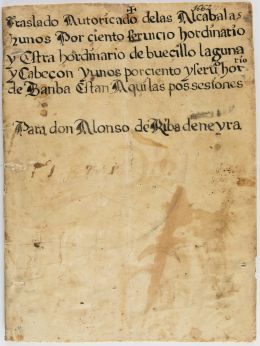 ✝ 1664
Traslado Autoricado delas Alcabalas
yunos Por ciento seruicio hordinario
y Estra hordinario de buecillo laguna
y Cabeçon yunos por ciento yseruº hor rio
de Bamba Estan Aqui las possesiones
Para don Alonso de Ribadeneyra